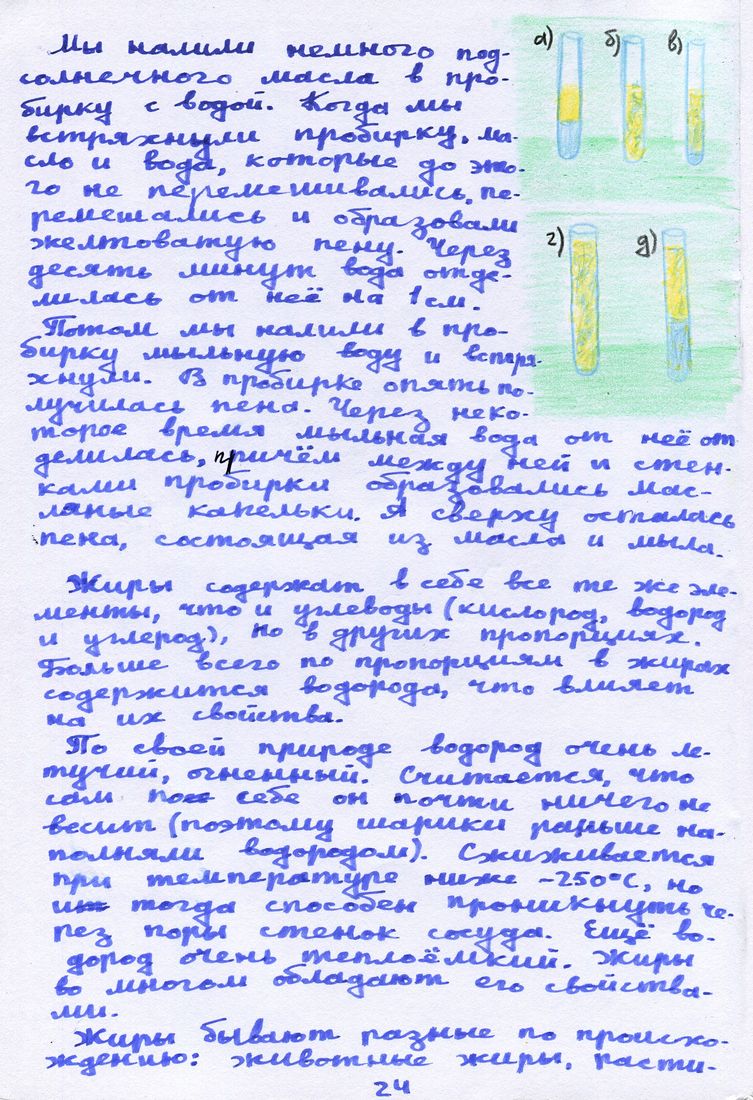 Мы налили немного под-
солнечного масла в про-
бирку с водой. Когда мы
встряхнули пробирку, ма-
сло и вода, которые до это-
го не перемешивались, пе-
ремешались и образовали
желтоватую пену. Через
десять минут вода отде-
лилась от неё на 1 см.
Потом мы налили в про-
бирку мыльную воду и встря-
хнули. В пробирке опять по-
лучилась пена. Через неко-
торое время мыльная вода от неё от
делилась, причём между ней и стен-
ками пробирки образовались мас-
ляные капельки. А сверху осталась
пена, состоящая из масла и мыла.
а) б) в)
г) д)
Жиры содержат в себе все те же эле-
менты, что и углеводы (кислород, водород
и углерод), но в других пропорциях.
Больше всего по пропорциям в жирах
содержится водорода, что влияет
на их свойства.
По своей природе водород очень ле-
тучий, огненный. Считается, что
сам по себе он почти ничего не
весит (поэтому шарики раньше на-
полняли водородом). Сжиживается
при температуре ниже -250°С, но
и тогда способен проникнуть че-
рез поры стенок сосуда. Ещё во-
дород очень теплоёмкий. Жиры
во многом обладают его свойства-
ми.
Жиры бывают разные по происхо-
ждению: животные жиры, расти-
24